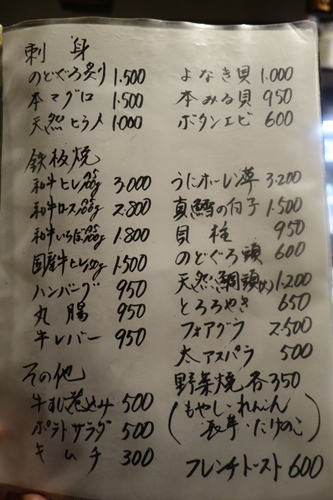 刺身
のどぐろ炙り 1.500
本マグロ 1.500
天然ヒラメ 1.000
よなき貝 1.000
本みる貝 950
ボタンエビ 600
鉄板焼
和牛ヒレ 100g 3.000
和牛ロース 100g 2.800
和牛いちぼ 100g 1.800
国産牛ヒレ 1.500
ハンバーグ 950
丸腸 950
牛レバー 950
うにホーレン草 3.200
真鱈の白子 1.500
貝柱 950
のどぐろ頭 600
天然鯛頭 1.200
とろろやき 650
フォアグラ 2.500
太アスパラ 500
野菜焼各350
(もやし・れんこん
長芋・たけのこ)
フレンチトースト 600
その他
牛すじ煮込み 500
ポテトサラダ 500
キムチ 300